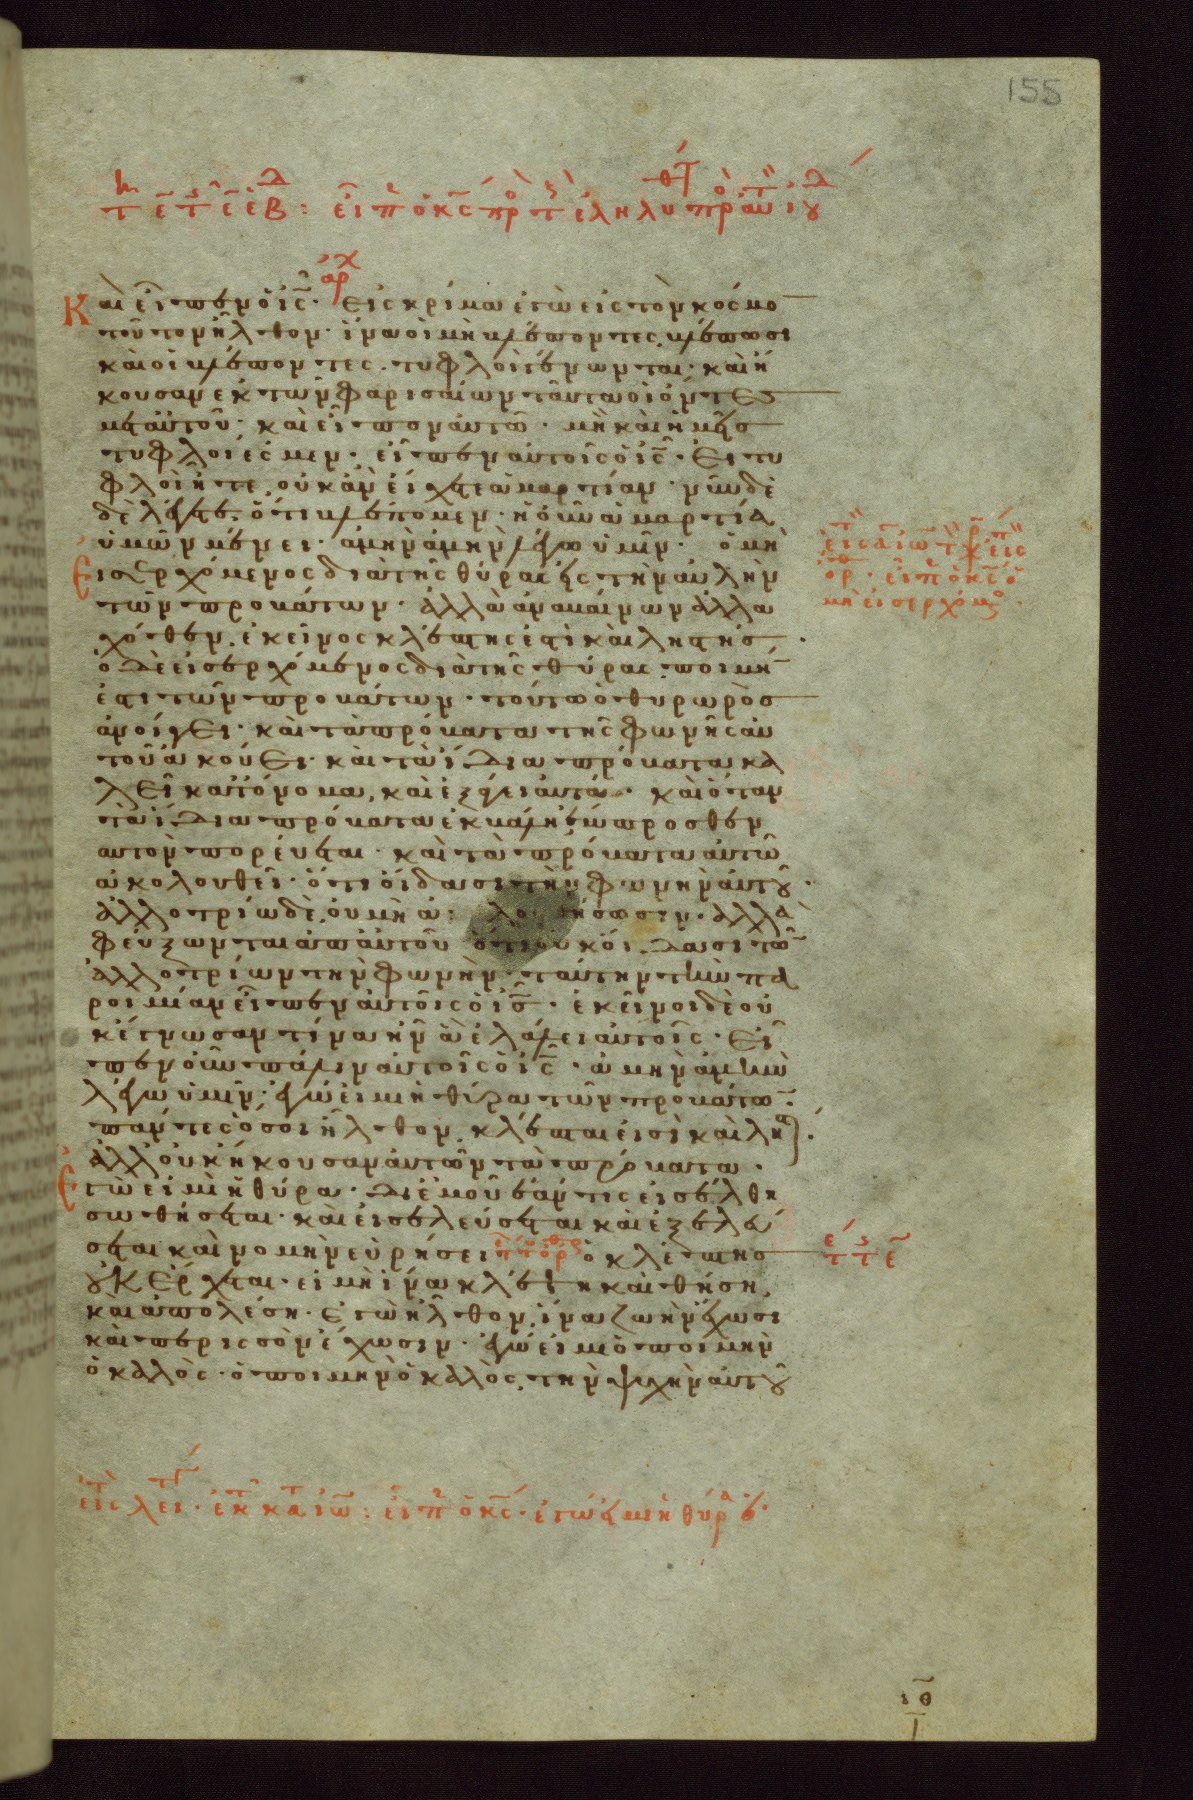 155
Καὶ εἶπεν ὁ ἰς̅· Εἰς κρίμα ἐγὼ εἰς τὸν κόσμο̅
τοῦτον ἦλθον· ἵνα οἱ μὴ βλέποντες, βλέπωσι
καὶ οἱ βλέποντες. τυφλοὶ γένωνται· καὶ ἤ
κουσαν ἐκ τῶν φαρισαίων ταῦτα οἱ ὄντες
μετ' αὐτοῦ· καὶ εἶπον αὐτῶ· μὴ καὶ ἡμεῖς
τυφλοί ἐσμεν· εἶπεν αὐτοῖς ὁ ἰς̅· Εἰ τυ
φλοὶ ἦτε, οὐκ ἂν εἴχετε ἁμαρτίαν· νῦν δὲ
λέγετε, ὅτι βλέπομεν· ἡ οὖν ἁμαρτία
ὑμῶν μένει· ἀμὴν ἀμὴν λέγω ὑμῖν· ὁ μὴ
εἰσερχόμενος διὰ τῆς θύρας εἰς τὴν αὐλὴν
τῶν προβάτων· ἀλλὰ ἀναβαίνων ἀλλα
χόθεν, ἐκεῖνος κλέπτης ἐστὶ καὶ ληστής·
ὁ δὲ εἰσερχόμενος διὰ τῆς θύρας, ποιμή̅
ἐστι τῶν προβάτων· τούτω ὁ θυρωρὸς
ἀνοίγει· καὶ τὰ πρόβατα τῆς φωνῆς αὐ
τοῦ ἀκούει· καὶ τὰ ἴδια πρόβατα κα
λεῖ κατ' ὄνομα, καὶ ἐξάγει αὐτά· καὶ ὅταν
τὰ ἴδια πρόβατα ἐκβάλη ἔμπροσθεν
αὐτῶν πορεύεται· καὶ τὰ πρόβατα αὐτῶ
ἀκολουθεῖ· ὅτι οἴδασι τὴν φωνὴν αὐτοῦ·
ἀλλοτρίω δὲ, οὐ μὴ ἀκολουθήσωσιν· ἀλλὰ
φεύξωνται ἀπ' αὐτοῦ ὅτι οὐκ οἴδασι τῶ̅
ἀλλοτρίων τὴν φωνήν· ταύτην τὴν πα
ροιμίαν εἶπεν αὐτοῖς ὁ ἰς̅· ἐκεῖνοι δὲ οὐ
κ ἔγνωσαν τίνα ἦν ἃ ἐλάλει αὐτοῖς· Εἶ
πεν οὖν πάλιν αὐτοῖς ὁ ἰς̅· ἀμὴν ἀμὴν
λέγω ὑμῖν, ἐγώ εἰμι ἡ θύρα τῶν προβάτω̅·
πάντες ὅσοι ἦλθον, κλέπται εἰσὶ καὶ λησταί·
ἀλλ' οὐκ ἤκουσαν αὐτῶν τὰ πρόβατα·
Ἐγώ εἰμι ἡ θύρα· δι' ἐμοῦ ἐάν τις εἰσέλθη
σωθήσεται· καὶ εἰσελεύσεται καὶ ἐξελεύ
σεται καὶ νομὴν εὑρήσει ὁ κλέπτης
οὐκ ἔρχεται· εἰ μὴ ἵνα κλέψη καὶ θύση,
καὶ ἀπολέση· ἐγὼ ἦλθον, ἵνα ζωὴν ἔχωσι
καὶ περισσὸν ἔχωσιν· ἐγώ εἰμι ὁ ποιμὴν
ὁ καλός· ὁ ποιμὴν ὁ καλὸς, τὴν ψυχὴν αὐτοῦ
ιθ̅